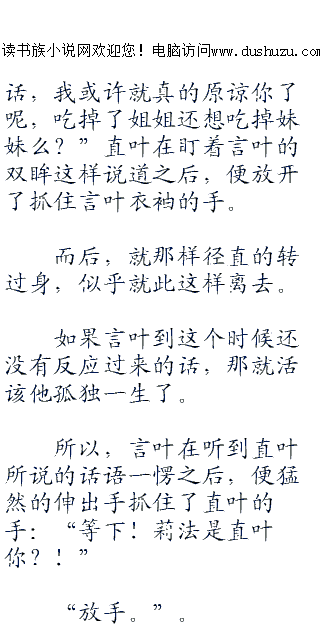 读书族小说网欢迎您！电脑访问www.dushuzu.com
话，我或许就真的原谅你了
呢，吃掉了姐姐还想吃掉妹
妹么？”直叶在盯着言叶的
双眸这样说道之后，便放开
了抓住言叶衣裆的手。
而后，就那样径直的转
过身，似乎就此这样离去。
如果言叶到这个时候还
没有反应过来的话，那就活
该他孤独一生了。
所以，言叶在听到直叶
所说的话语一愣之后，便猛
然的伸出手抓住了直叶的
手：“等下！莉法是直叶
你？！”
“放手。”。